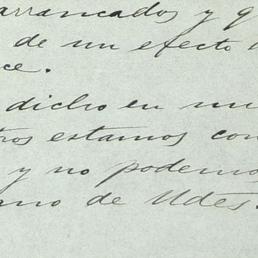 arrancados y q
de un efecto
ce.
dicho en mu
tros estamos con
y no podemo
ano de Udes.